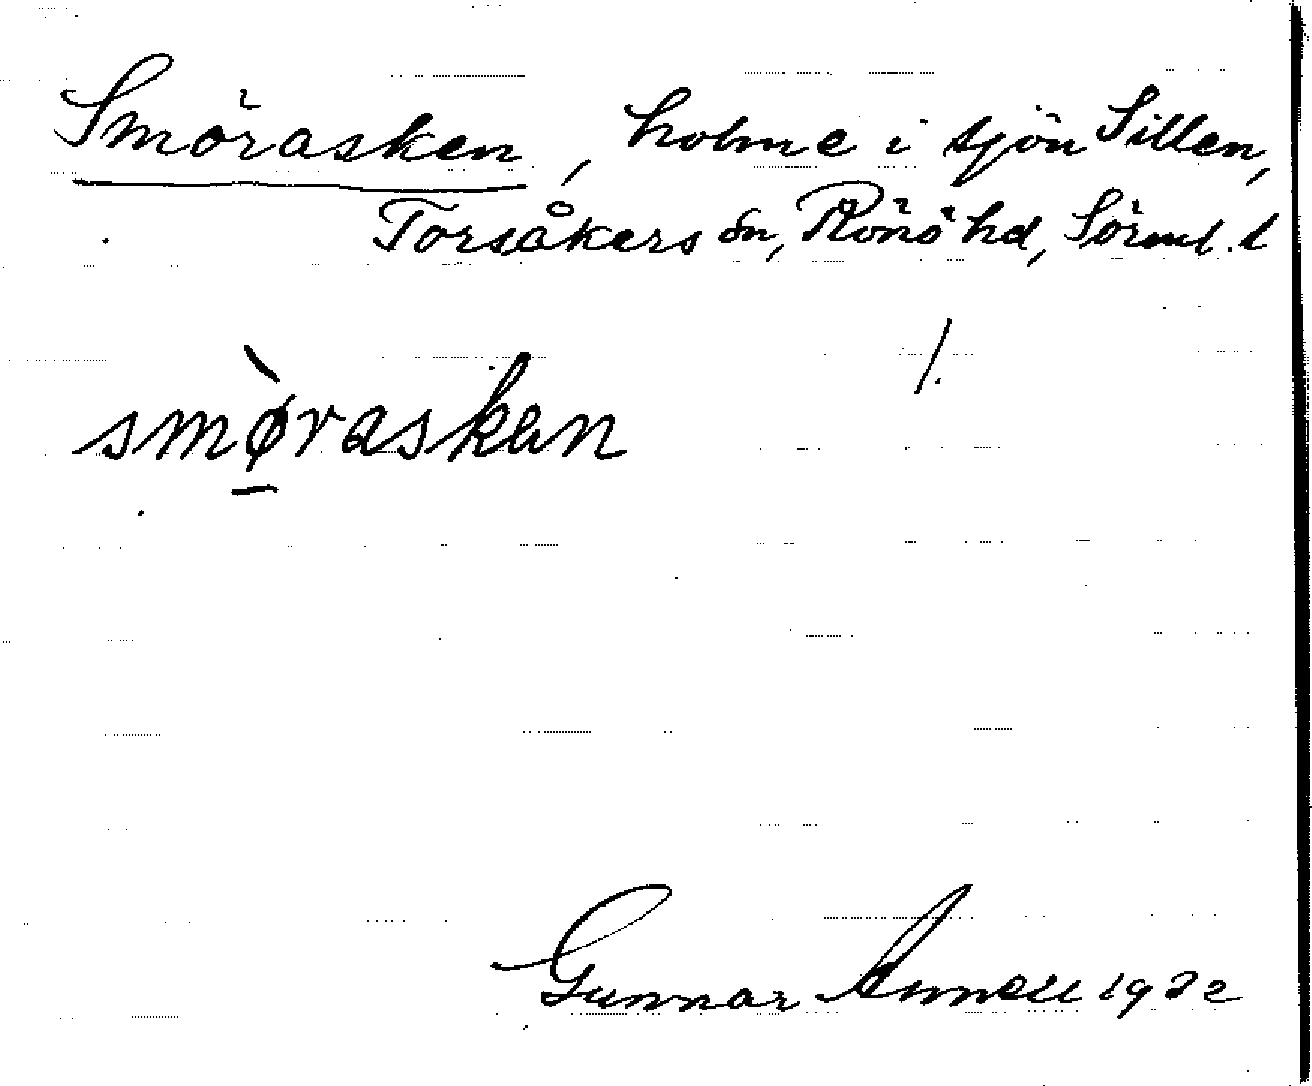 Smörasken, holme i sjön Sillen,
Torsåkers sn, Rönö hd, Sörml. l
/.
smø̀raskan
Gunnar Annell 1922